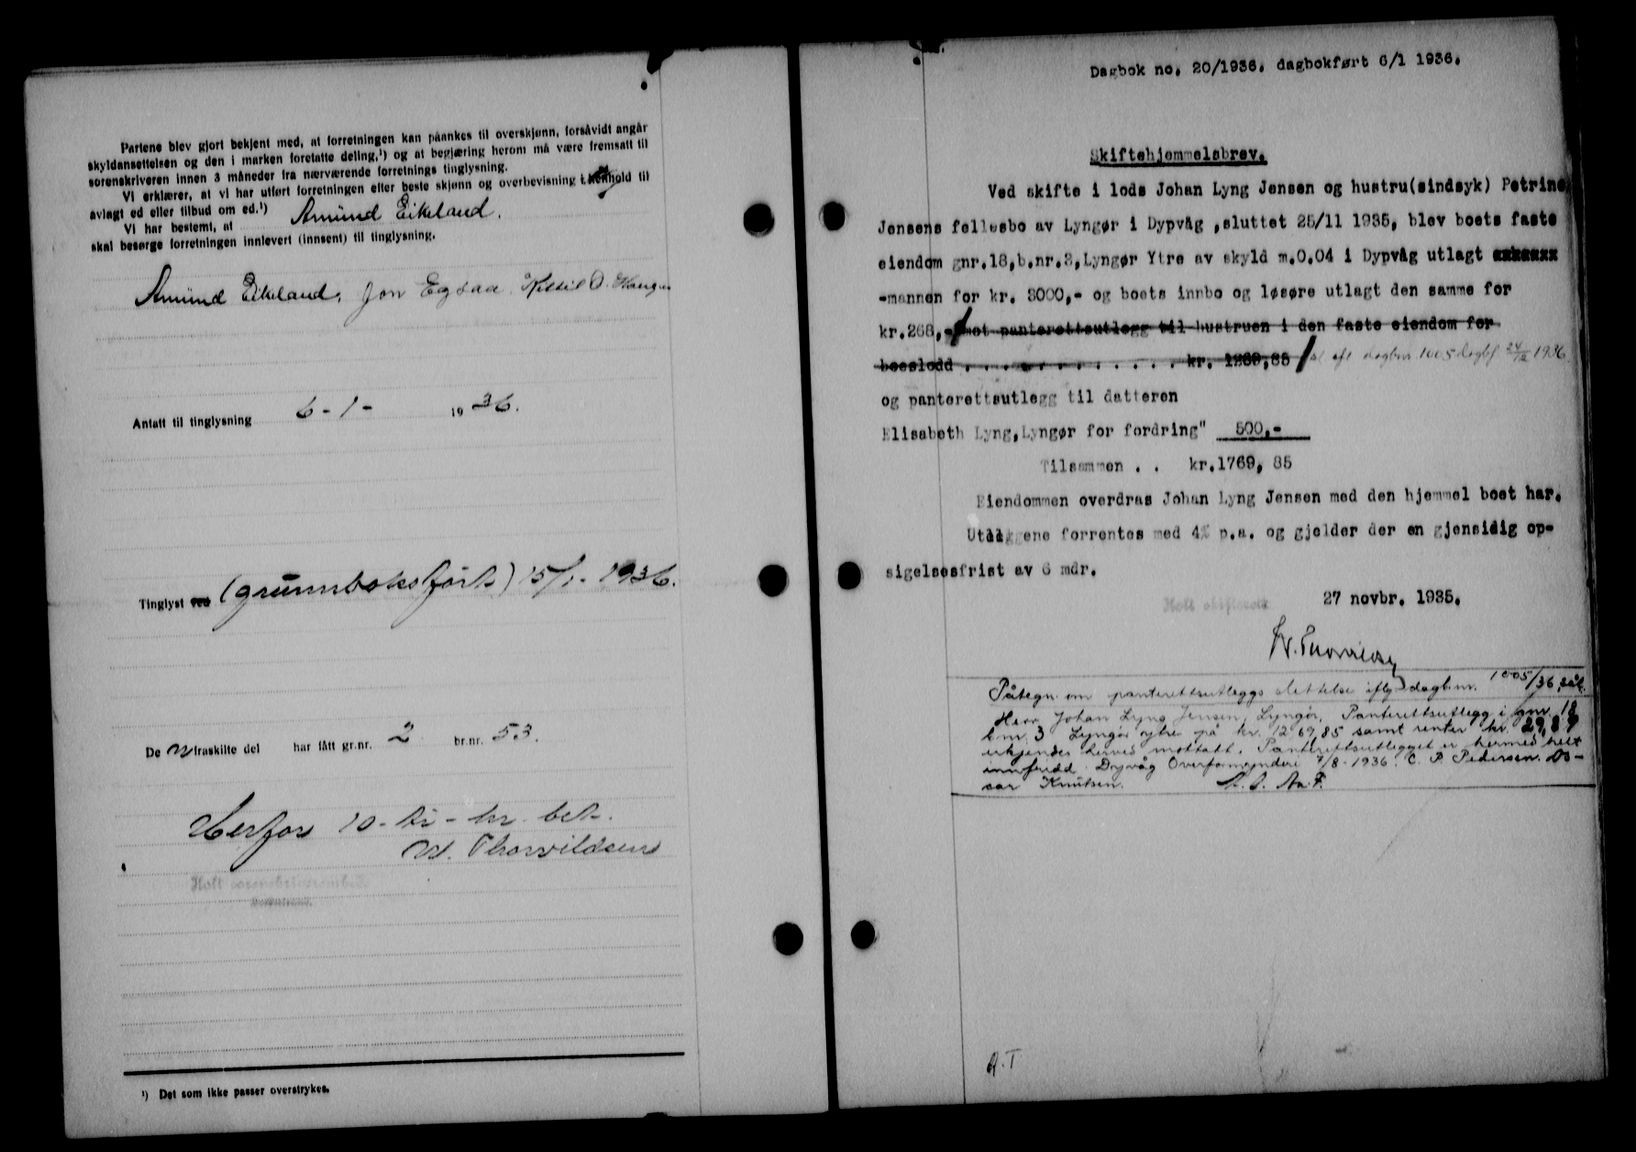 Partene blev gjort bekjent med, at forretningen kan påankes til overskjønn, forsåvidt angår
skyldansettelsen og den i marken foretatte deling,¹) og at begjæring herom må være fremsatt til
sorenskriveren innen 3 måneder fra nærværende forretnings tinglysning.
Vi erklærer, at vi har utført forretningen efter beste skjønn og overbevisning i henhold til
avlagt ed eller tilbud om ed.¹)
Vi har bestemt, at Amund Eikeland.
skal besørge forretningen innlevert (innsent) til tinglysning.
Amund Eikeland. Jon Egsaa. Kittil O.
Antatt til tinglysning 6-1- 1936.
Tinglyst ved (grunnboksført) 15/1-1936.
De fraskilte del har fått gr.nr. 2 br.nr. 53.
Herfor 10-ti-kr. bet.
W. Thorvildsen
¹) Det som ikke passer overstrykes.
Dagbok no. 20/1936. dagbokført 6/1 1936.
Skiftehjemmelsbrev.
Ved skifte i lods Johan Lyng Jensen og hustru(sindsyk) Petrine
Jensens fellesbo av Lyngør i Dypvåg ,sluttet 25/11 1935, blev boets faste
eiendom gnr.18,b.nr.3,Lyngør Ytre av skyld m.0.04 i Dypvåg utlagt
-mannen for kr. 3000,- og boets innbo og løsøre utlagt den samme for
kr.268,- mot panterettsutlegg til hustruen i den faste eiendom for
boeslodd . . . . . . . . . . . . kr. 1269,85 dagbnr. 1005 1936
og panterettsutlegg til datteren
Elisabeth Lyng,Lyngør for fordring" 500,-
Tilsammen . . kr.1769, 85
Eiendommen overdras Johan Lyng Jensen med den hjemmel boet har.
Utleggene forrentes med 4% p.a. og gjelder der en gjensidig op-
sigelsesfrist av 6 mdr.
Holt skifterett 27 novbr. 1935.
Påtegn. om panterettsutleggs slettelse iflg. dagb.nr. 1005/36
Herr Johan Lyng Jensen, Lyngør. Panterettsutlegg i gnr. 18
b.nr. 3 Lyngør ytre på kr. 1269,85 samt renter kr. 29,89
erkjendes herved mottatt. Panterettsutlegget er hermed helt
innfridd. Dypvåg Overformynderi 7/8-1936. C. P. Pedersen. Os-
car Knutsen.
A.T